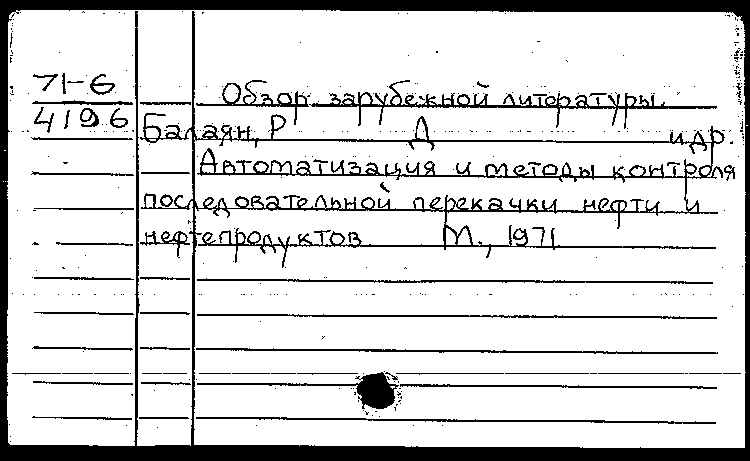 71-6
4196
Обзор зарубежной литературы.
Балаян, Р Д и др.
Автоматизация и методы контроля
последовательной перекачки нефти и
нефтепродуктов М., 1971